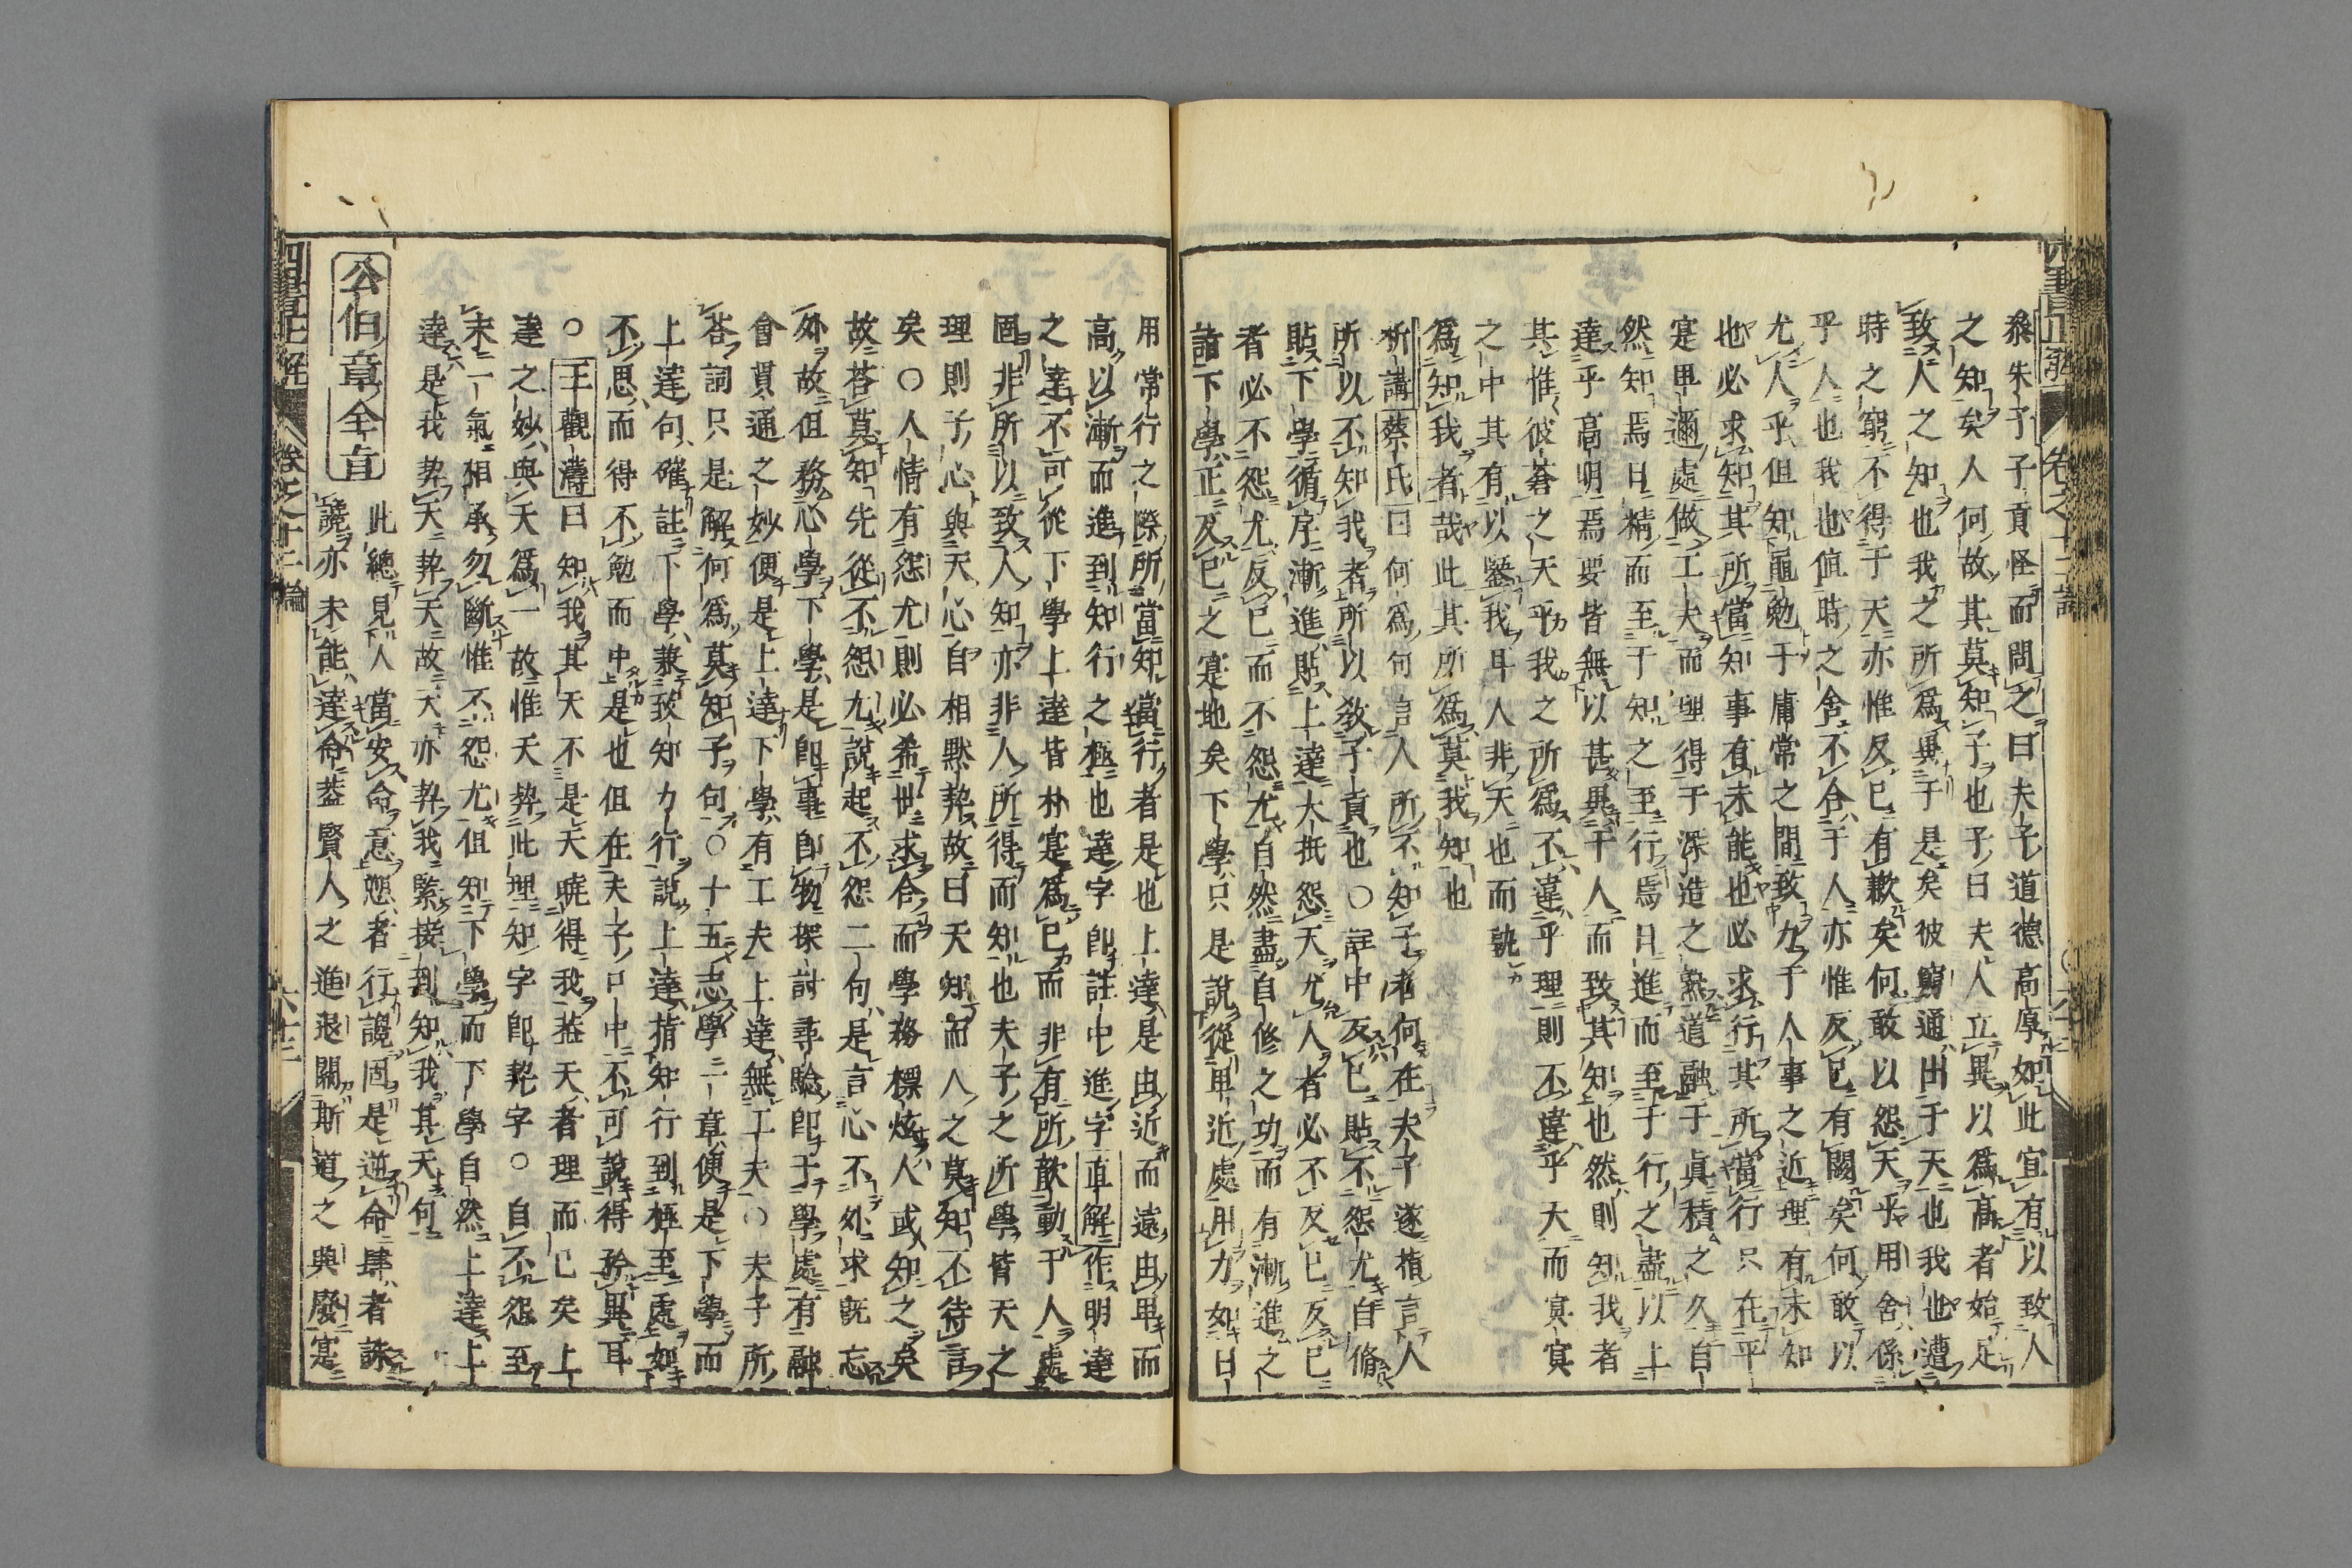 參朱子子貢怪而問之曰夫子道德高厚如此宜有以致人
之知矣人何故其莫知子也子曰夫人立異以爲高者始足
致人之知也我之所爲異于是矣彼窮通出于天也我也遭
時之窮不得于天亦惟反已有歉矣何敢以怨天乎用舍係
乎人也我也値時之舍不合于人亦惟反已有闕矣何敢以
尤人乎但知黽勉于庸常之間致力于人事之近理有未知
也必求知其所當知事有未能也必求行其所當行只在平
寔卑邇處做工夫而理得于深造之熟道融于眞積之久自
然知焉日精而至于知之至行焉日進而至于行之盡以上
達乎高明焉要皆無以甚異于人而致其知也然則知我者
其惟彼蒼之天乎我之所爲不違乎理則不違乎天而寘寘
之中其有以鑒我耳人非天也而孰
爲知我者哉此其所爲莫我知也
析講蔡氏曰何爲何言人所不知子者何在夫子遂指言人
所以不知我者所以敎子貢也○註中反已貼不怨尤自脩
貼下學循序漸進貼上達大抵怨天尤人者必不反已反已
者必不怨尤反已而不怨尤自然盡自修之功而有漸進之
諳下學正反已之寔地矣下學只是說從卑近處用力如日
用常行之際所當知當行者是也上達是由近而遠由卑而
高以漸而進到知行之極也達字卽註中進字直解作明達
之達不可從下學上達皆朴寔爲已而非有所歆動于人處
固非所以致人知亦非人所得而知也夫子之所學皆天之
理則子心與天心自相默契故曰天知而人之莫知不待言
矣○人情有怨尤則必希世求合而學務標炫人或知之矣
故荅莫知先從不怨尤說起不怨二句是言心不外求旣忘
外故但務心學下學是卽事卽物探討尋驗卽于學處有融
會貫通之妙便是上達下學有工夫上達無工夫○夫子所
荅詞只是解何爲莫知子句○十五志學二章便是下學而
上達句確註下學兼致知力行說上達指知行到極至處如
不思而得不勉而中是也但在夫子口中不可說得矜異耳
○王觀濤曰知我其天不是天曉得我葢天者理而已矣上
達之妙與天爲一故惟天契此理知字卽契字○自不怨至
末一氣相承勿斷惟不怨尤但知下學而下學自然上達上
達是我契天契天故天亦契我緊接到知我其天何
公伯章全旨 此總見人當安命意愬者行讒固是逆命肆者誅
讒亦未能達命葢賢人之進退關斯道之興廢寔
四書正解 卷之十二論 六十三